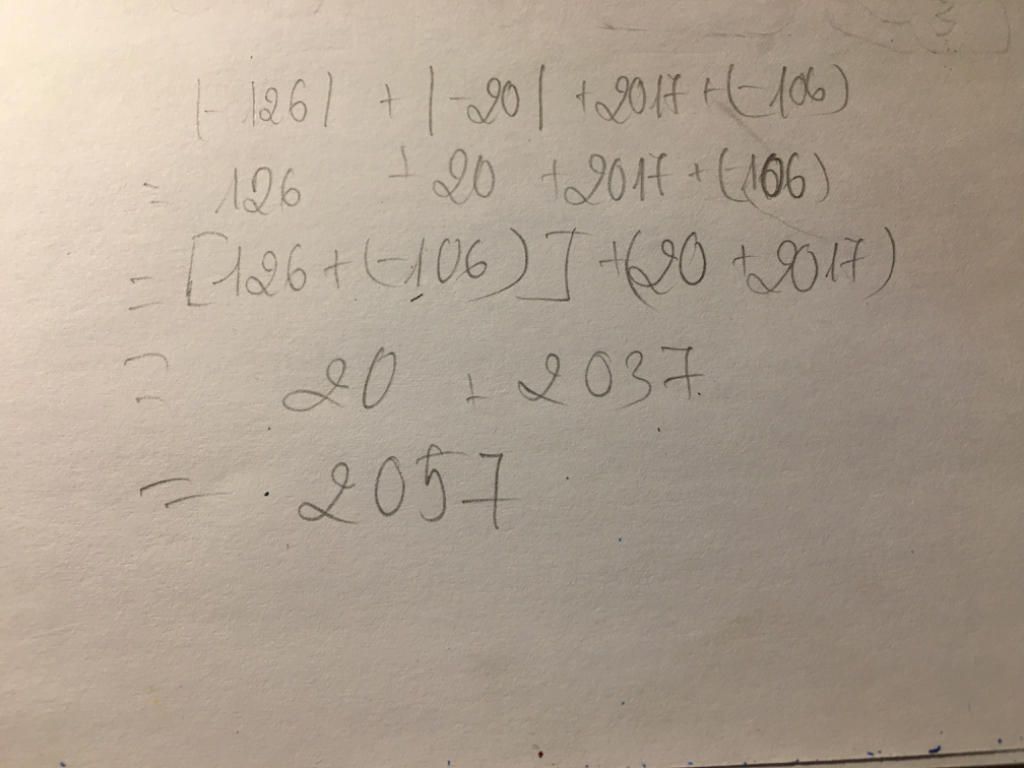 |-126| + |-20| + 2017 + (-106)
= 126 + 20 + 2017 + (-106)
= [126 + (-106)] + (20 + 2017)
= 20 + 2037
= 2057